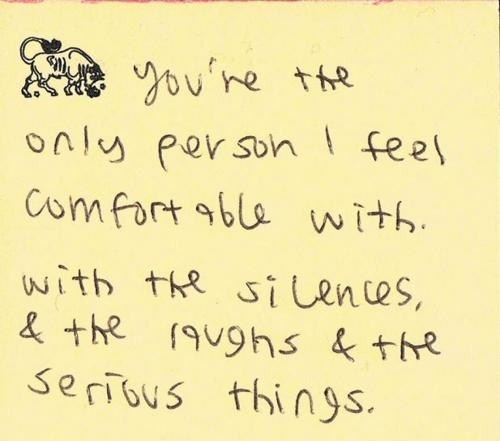 you're the
only person I feel
comfortable with.
with the silences,
& the laughs & the
serious things.